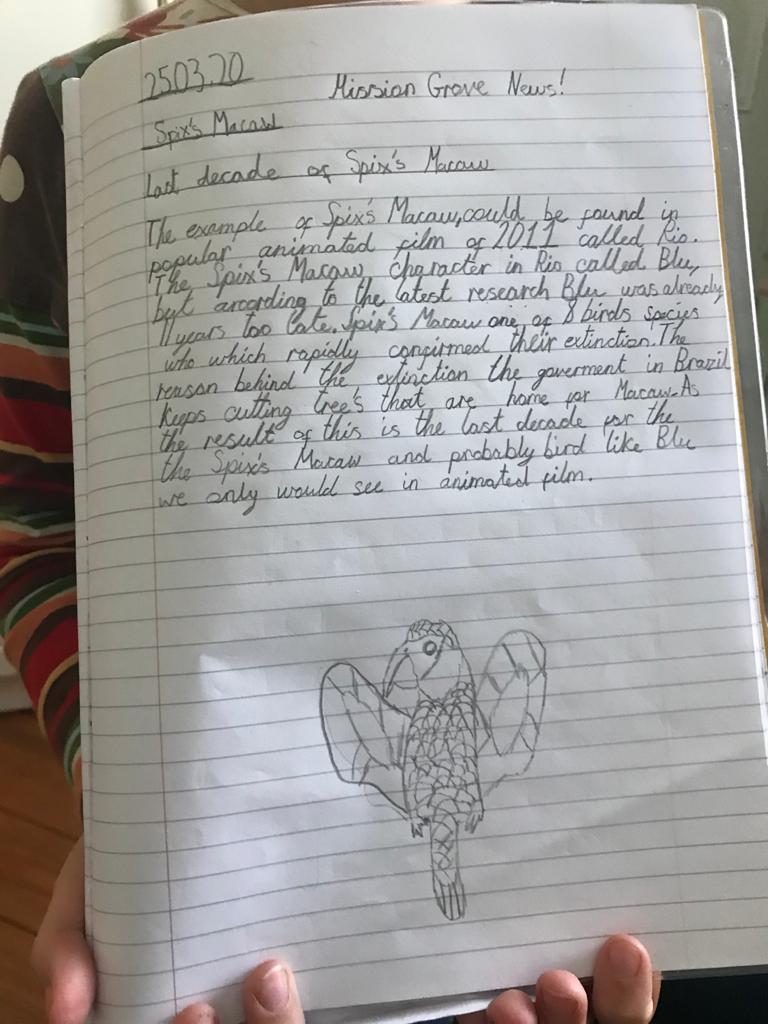 25.03.20
Mission Grove News!
Spix's Macaw
Last decade of Spix's Macaw
The example of Spix's Macaw, could be found in
popular animated film of 2011 called Rio.
The Spix's Macaw character in Rio called Blu,
but arcording to the latest research Blu was already
11 years too late. Spix's Macaw one of 8 birds species
who which rapidly confirmed their extinction. The
reason behind the extinction the goverment in Brazil
keeps cutting tree's that are home for Macaw. As
the result of this is the last decade for the
the Spix's Macaw and probably bird like Blu
we only would see in animated film.